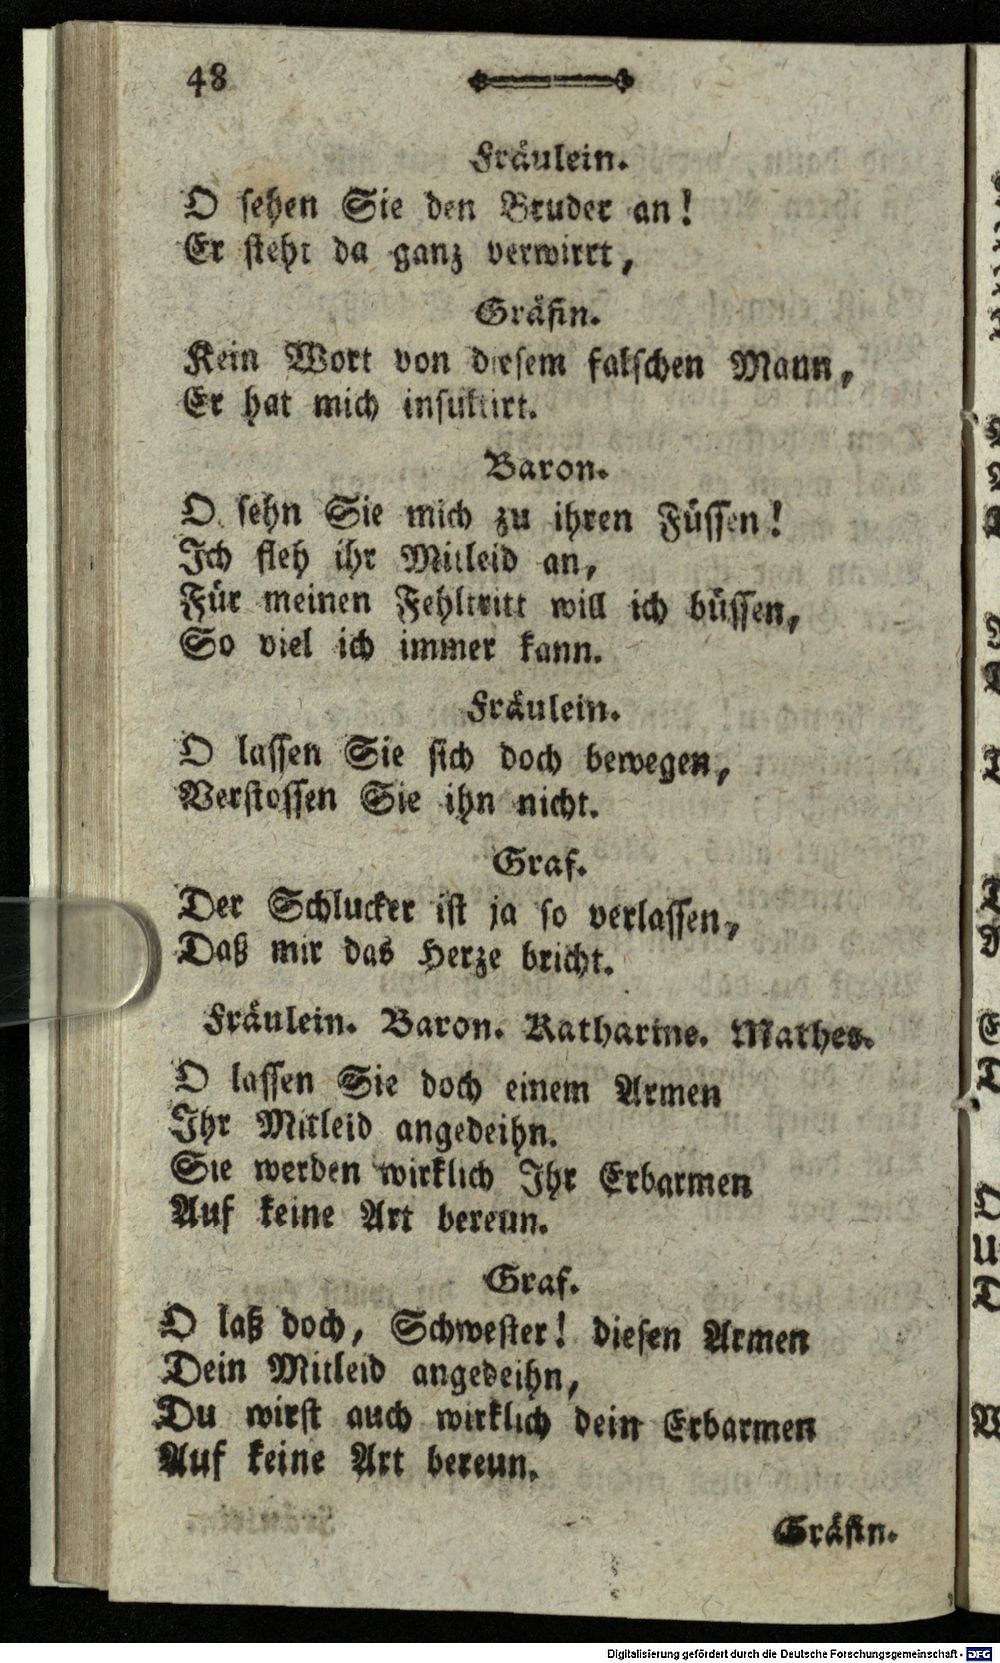 48
Fräulein.
O sehen Sie den Bruder an!
Er steht da ganz verwirrt,
Gräfin.
Kein Wort von diesem falschen Mann,
Er hat mich insultirt.
Baron.
O sehn Sie mich zu ihren Füssen!
Ich fleh ihr Mitleid an,
Für meinen Fehltritt will ich büssen,
So viel ich immer kann.
Fräulein.
O lassen Sie sich doch bewegen,
Verstossen Sie ihn nicht.
Graf.
Der Schlucker ist ja so verlassen,
Daß mir das Herze bricht.
Fräulein. Baron. Katharine. Mathes.
O lassen Sie doch einem Armen
Ihr Mitleid angedeihn.
Sie werden wirklich Ihr Erbarmen
Auf keine Art bereun.
Graf.
O laß doch, Schwester! diesen Armen
Dein Mitleid angedeihn,
Du wirst auch wirklich dein Erbarmen
Auf keine Art bereun.
Gräfin.
Digitalisierung gefördert durch die Deutsche Forschungsgemeinschaft - DFG